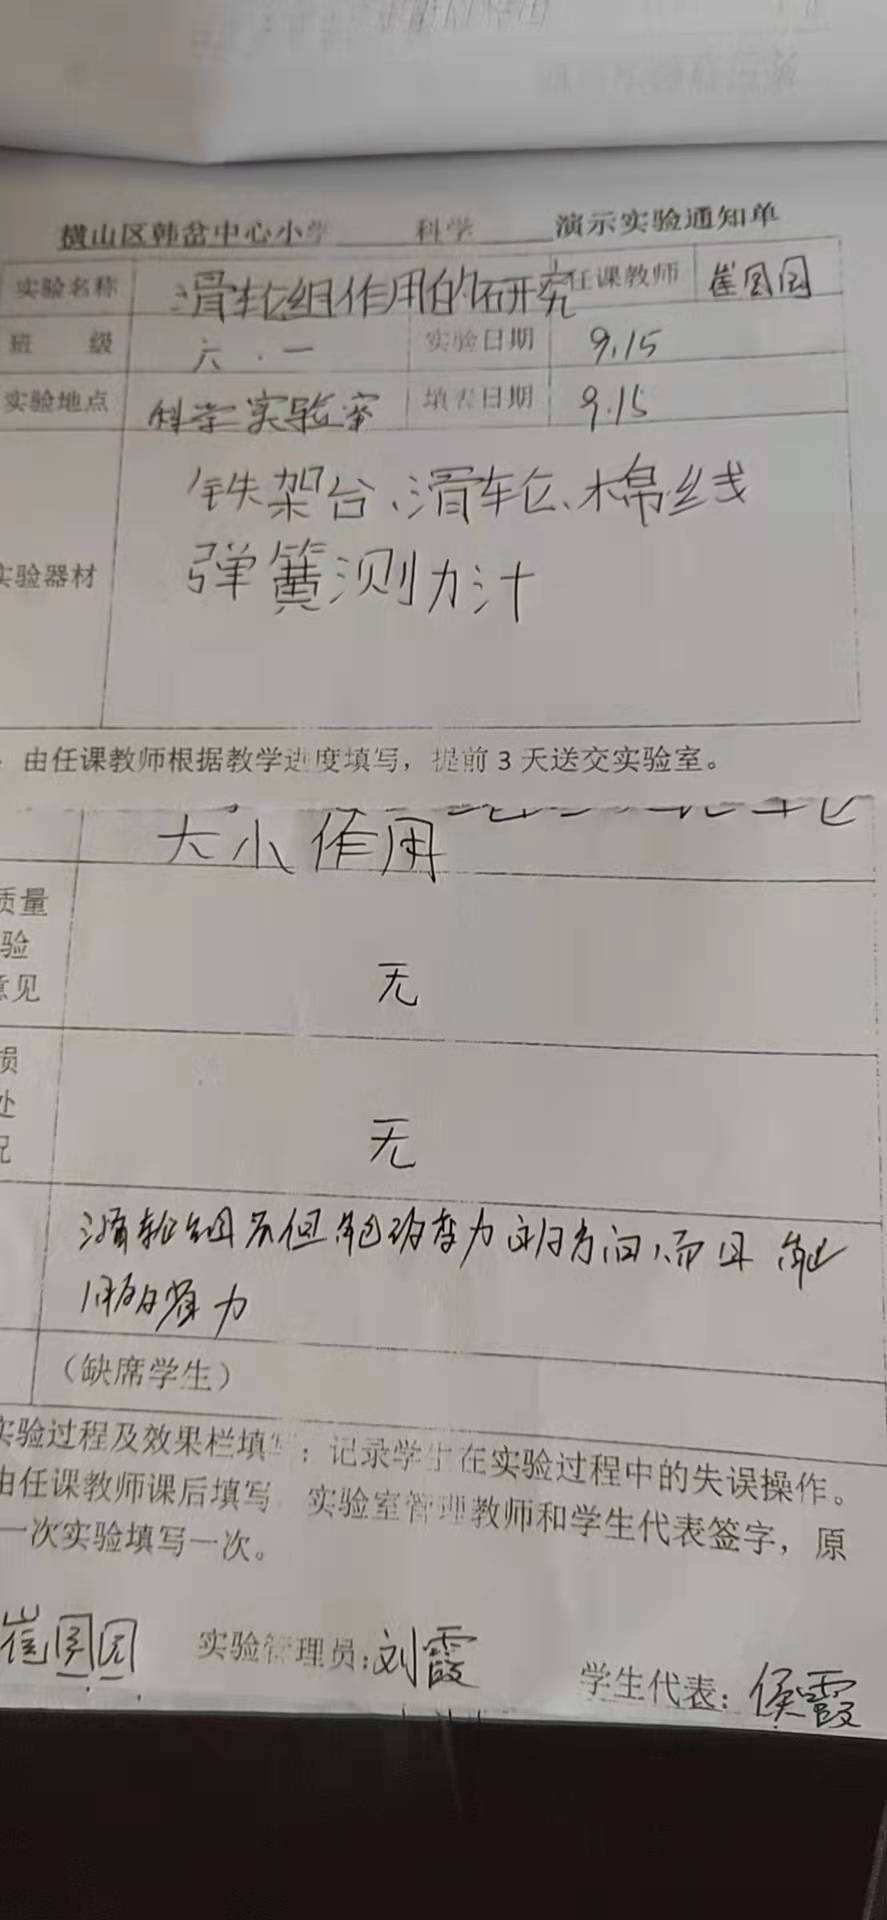 横山区韩岔中心小学 科学 演示实验通知单
实验名称 滑轮组作用的研究 任课教师
班 级 六.一 实验日期 9.15
实验地点 科学实验室 填表日期 9.15
铁架台、滑轮、棉线
实验器材 弹簧测力计
由任课教师根据教学进度填写，提前3天送交实验室。
大小作用
质量
验
意见 无
损
处 无
况
滑轮组不但能改变力的方向，而且能
省力
（缺席学生）
实验过程及效果栏填写：记录学生在实验过程中的失误操作。
由任课教师课后填写 实验室管理教师和学生代表签字，原
一次实验填写一次。
实验管理员：刘霞
学生代表：侯霞